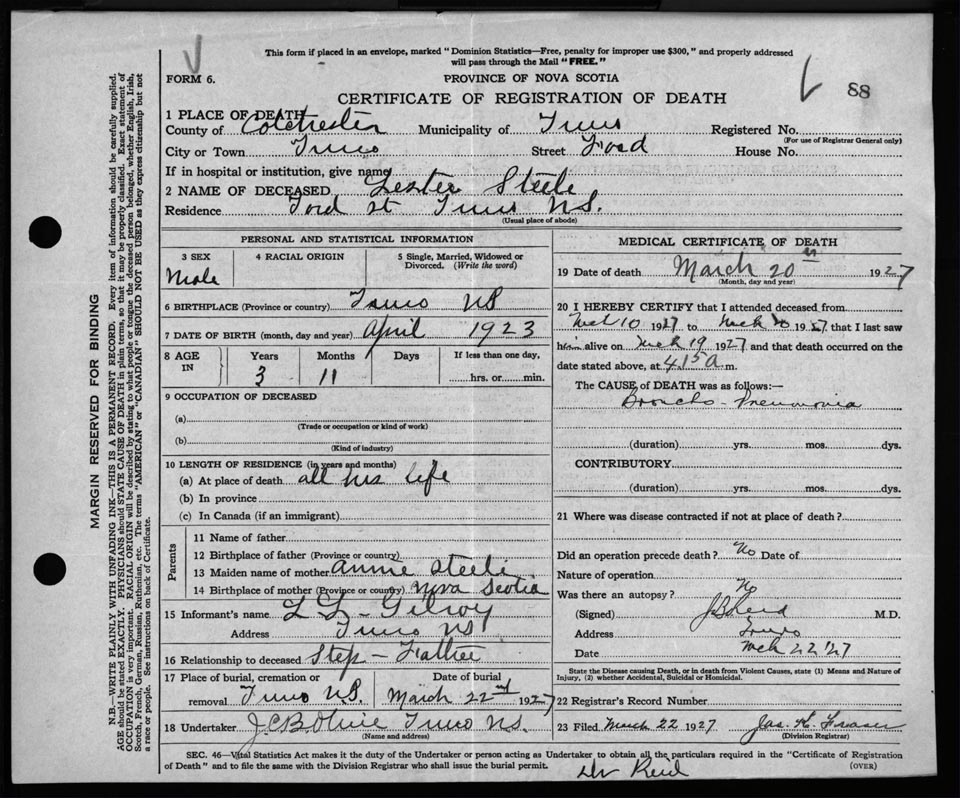 This form if placed in an envelope, marked "Dominion Statistics—Free, penalty for improper use $300," and properly addressed
will pass through the Mail "FREE."
FORM 6.
PROVINCE OF NOVA SCOTIA
88
CERTIFICATE OF REGISTRATION OF DEATH
1 PLACE OF DEATH
County of Colchester Municipality of Truro Registered No.
(For use of Registrar General only)
City or Town Truro Street Ford House No.
If in hospital or institution, give name
2 NAME OF DECEASED Lester Steele
Residence Ford st Truro N.S.
(Usual place of abode)
PERSONAL AND STATISTICAL INFORMATION
3 SEX 4 RACIAL ORIGIN 5 Single, Married, Widowed or
Divorced. (Write the word)
Male
6 BIRTHPLACE (Province or country) Truro NS
7 DATE OF BIRTH (month, day and year) April 1923
8 AGE Years Months Days If less than one day,
IN 3 11 hrs. or min.
9 OCCUPATION OF DECEASED
(a)
(Trade or occupation or kind of work)
(b)
(Kind of industry)
10 LENGTH OF RESIDENCE (in years and months)
(a) At place of death all his life
(b) In province
(c) In Canada (if an immigrant)
Parents
11 Name of father
12 Birthplace of father (Province or country)
13 Maiden name of mother Annie Steele
14 Birthplace of mother (Province or country) Nova Scotia
15 Informant's name L L Gilroy
Address Truro NS
16 Relationship to deceased Step-Father
17 Place of burial, cremation or Date of burial
removal Truro N.S. March 22nd 1927
18 Undertaker Truro N.S.
(Name and address)
MEDICAL CERTIFICATE OF DEATH
19 Date of death March 20th 1927
(Month, day and year)
20 I HEREBY CERTIFY that I attended deceased from
Mch 10 1927 to Mch 20 1927 that I last saw
him alive on Mch 19 1927 and that death occurred on the
date stated above, at 4.15 a m.
The CAUSE of DEATH was as follows:
Broncho-Pneumonia
(duration) yrs. mos. dys.
CONTRIBUTORY
(duration) yrs. mos. dys.
21 Where was disease contracted if not at place of death?
Did an operation precede death? No Date of
Nature of operation
Was there an autopsy? No
(Signed) J B Reid M.D.
Address Truro
Date Mch 22 '27
State the Disease causing Death, or in death from Violent Causes, state (1) Means and Nature of
Injury, (2) whether Accidental, Suicidal or Homicidal.
22 Registrar's Record Number
23 Filed March 22 1927 Jas. H. Fraser
(Division Registrar)
SEC. 46—Vital Statistics Act makes it the duty of the Undertaker or person acting as Undertaker to obtain all the particulars required in the "Certificate of Registration
of Death" and to file the same with the Division Registrar who shall issue the burial permit. (OVER)
Dr Reid
MARGIN RESERVED FOR BINDING
N.B.—WRITE PLAINLY WITH UNFADING INK—THIS IS A PERMANENT RECORD. Every item of information should be carefully supplied.
AGE should be stated EXACTLY. PHYSICIANS should STATE CAUSE OF DEATH in plain terms, so that it may be properly classified. Exact statement of
OCCUPATION is very important. RACIAL ORIGIN will be described by stating to what people or tongue the deceased person belonged, whether English, Irish,
Scotch, French, German, Russian, Ruthenian, etc. The terms "AMERICAN" or "CANADIAN" SHOULD NOT BE USED as they express citizenship but not
a race or people. See instructions on back of Certificate.